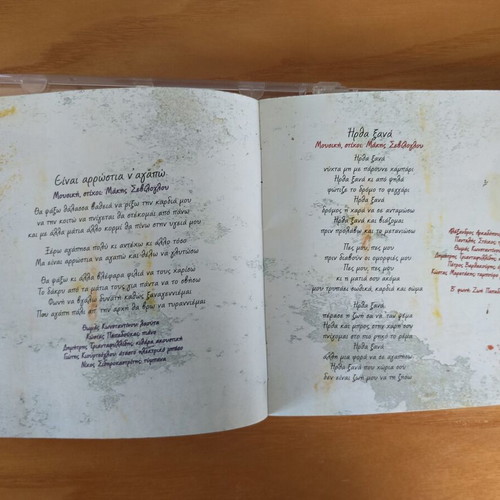 Είναι αρρώστια ν αγαπώ
Μουσική, στίχοι: Μάκης Σεβίλογλου
Θα ψάξω θάλασσα βαθειά να ρίξω την καρδιά μου
να την κοιτώ να πνίγεται θα στέκομαι από πάνω
και μα άλλα μάτια άλλο κορμί θα πίνω στην υγειά μου
Ξέρω αγάπησα πολύ κι αντέχω κι άλλο τόσο
Μα είναι αρρώστια να αγαπώ και θέλω να γλυτώσω
Θα ψάξω κι άλλα βλέφαρα φιλιά να τους χαρίσω
Το δάκρυ από τα μάτια τους για πάντα να το σβήσω
Φωνή να βγάλω δυνατή καθώς ξαναγεννιέμαι
Πως αγάπη πάλι απ' την αρχή θα βρω να τυραννιέμαι
Θωμάς Κωνσταντίνου λαούτο
Κώστας Παπαδούκας πιάνο
Δημήτρης Τριανταφυλλίδης κιθάρα ακουστική
Γιώτης Κιουρτσόγλου άταστο ηλεκτρικό μπάσο
Νίκος Σιδηροκαστρίτης τύμπανα
Ήρθα ξανά
Μουσική, στίχοι: Μάκης Σεβίλογλου
Ήρθα ξανά
νύχτα μη με πάρουνε χαμπάρι
Ήρθα ξανά κι από ψηλά
φώτιζε το δρόμο το φεγγάρι
Ήρθα ξανά
δρόμος η χαρά να σε ανταμώσω
Ήρθα ξανά και βιάζομαι
πριν προλάβω και το μετανιώσω
Πες μου, πες μου
πριν διαβούν οι όμορφές μου
Πες μου, πες μου
κι η ματιά σου ακόμα
μου τρυπάει φωδικά, καρδιά και σώμα
Ήρθα ξανά
πέρασε η ζωή σα να 'ταν ψέμα
Ήρθα και μπρος στην χάρη σου
πνίγομαι στο πιο ρηχό το ρέμα
Ήρθα ξανά
άλλη μια φορά να σε αγαπήσω
Ήρθα ξανά που χώρια σου
δεν είναι ζωή μου να τη ζήσω
Αλέξανδρος
Παντελής
Θωμάς Κωνσταντίνου
Δημήτρης Τριανταφυλλίδης
Κώστας
Β' φωνή: Ζωή